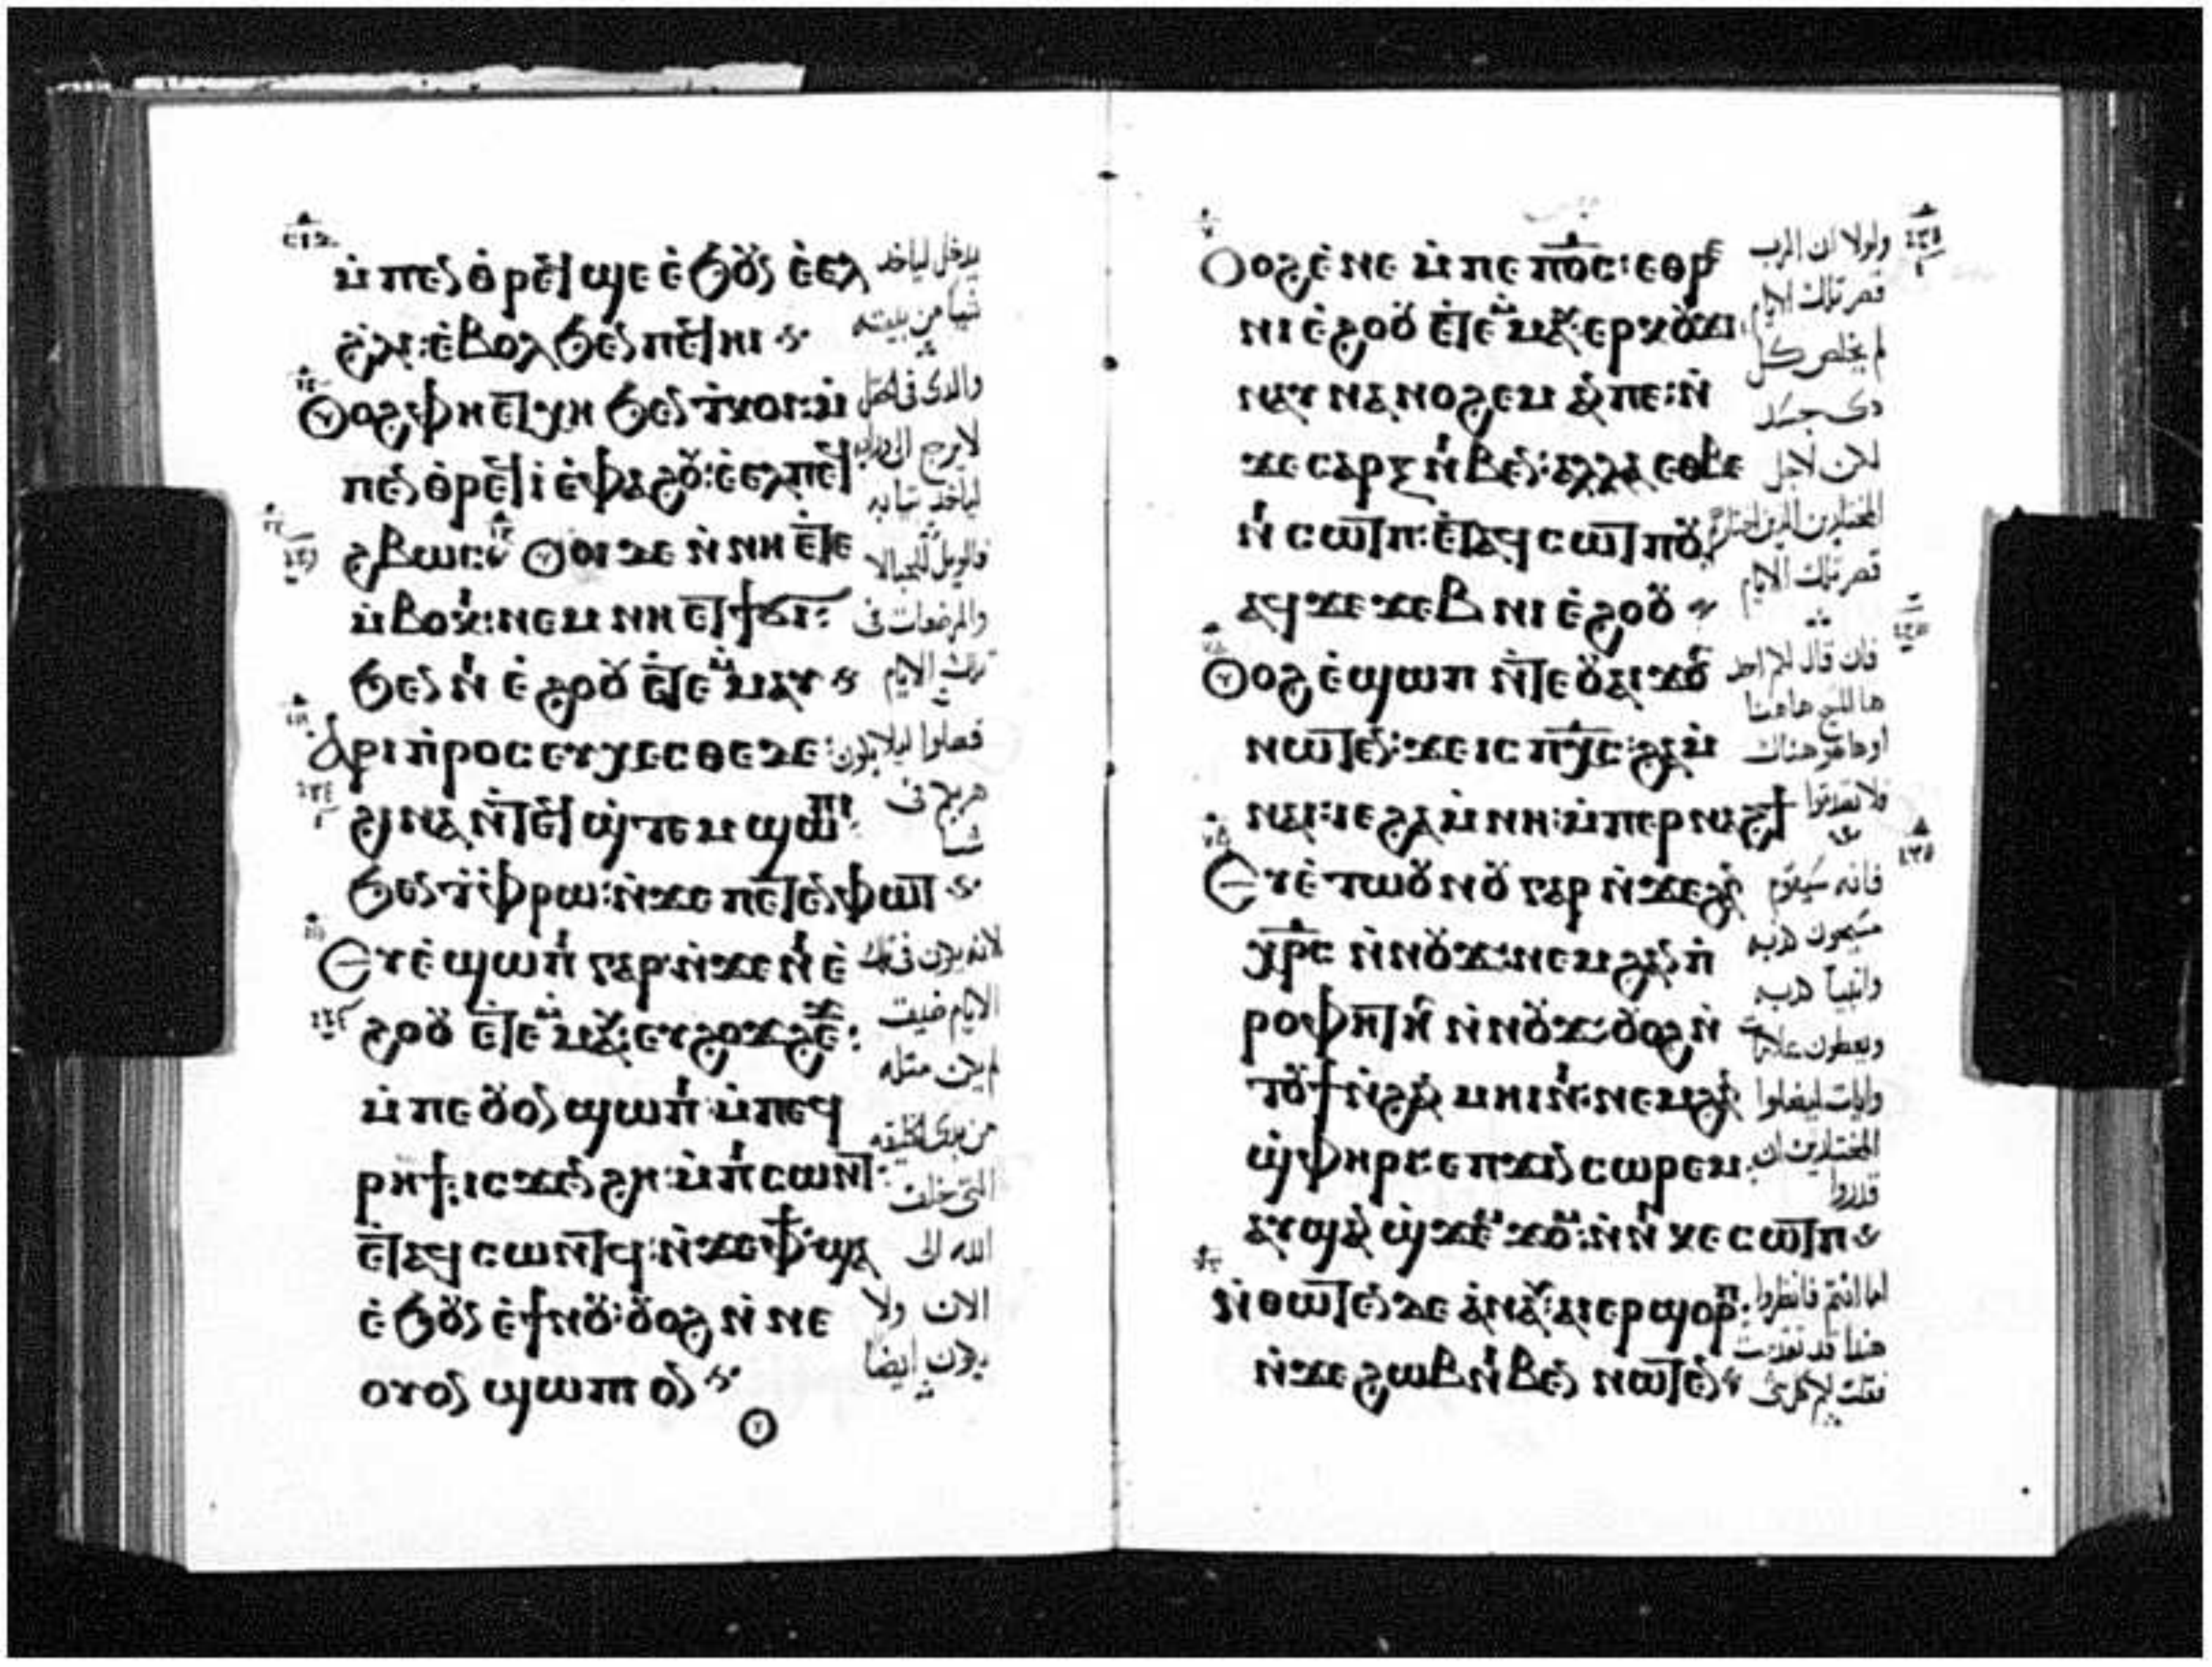 ⲙ̀ⲡⲉⲛⲑⲣⲉϥϣⲉ ⲉ̀ϧⲟⲩⲛ ⲉ̀ⲉⲗ
ϩⲗⲓ: ⲉ̀ⲃⲟⲗϧⲉⲛ ⲡⲉϥⲏⲓ
ⲟⲩⲟϩ ⲫⲏⲉⲧⲭⲏ ϧⲉⲛ ⲧ̀ⲕⲟⲓ: ⲙ̀
ⲡⲉⲛⲑⲣⲉϥⲓ̀ ⲉ̀ⲫⲁϩⲟⲩ: ⲉ̀ⲉⲗ ⲡⲉϥ
ϩⲃⲱⲥ: ⲟⲩⲟⲓ ⲇⲉ ⲛ̀ⲛⲏ ⲉⲧⲉ
ⲙ̀ⲃⲟⲕⲓ: ⲛⲉⲙ ⲛⲏ ⲉⲧϯϭⲓ:
ϧⲉⲛ ⲛⲓⲉ̀ϩⲟⲟⲩ ⲉ̀ⲧⲉⲙⲙⲁⲩ
ⲁⲣⲓⲡ̀ⲣⲟⲥⲉⲩⲭⲉⲥⲑⲉ ⲇⲉ:
ϩⲓⲛⲁ ⲛ̀ⲧⲉϥϣ̀ⲧⲉⲙϣⲱⲡⲓ
ϧⲉⲛ ϯⲫ̀ⲣⲱ: ⲛ̀ϫⲉ ⲡⲉⲧⲉⲛⲫⲱⲧ
ⲉⲩⲉ̀ϣⲱⲡⲓ ⲅⲁⲣ: ⲛ̀ϫⲉ ⲛⲓⲉ̀
ϩⲟⲟⲩ ⲉ̀ⲧⲉⲙⲙⲁⲩ: ⲉⲩϩⲟϫϩⲉϫ:
ⲙ̀ⲡⲉ ⲟⲩⲟⲛ ϣⲱⲡⲓ ⲙ̀ⲡⲉϥ
ⲣⲏϯ: ⲓⲥϫⲉⲛ ϩⲏ: ⲙ̀ⲡⲓⲥⲱⲛⲧ:
ⲉ̀ⲧⲁϥⲥⲱⲛⲧϥ: ⲛ̀ϫⲉ ⲫϯ ϣⲁ
ⲉ̀ϧⲟⲩⲛ ⲉ̀ϯⲛⲟⲩ: ⲟⲩⲟϩ ⲛ̀ⲛⲉ
ⲟⲩⲟⲛ ϣⲱⲡⲓ ⲟⲛ
يدخل لياخد
شيا من بيته
والدى فى الحقل
لا يرجع الى وراه
لياخد تيابه
فالويل للحبالا
والمرضعات فى
تلك الايام
فصلوا ليلا يكون
هربكم فى
شتا
لانه يكون فى تلك
الايام ضيق
لم يكن مثله
من بدى الخليقه
التى خلقت
الله الى
الان ولا
يكون ايضا
ⲟⲩⲟϩ ⲉ̀ⲛⲉ ⲙ̀ⲡⲉ ⲡⲟ̅ⲥ̅: ⲉⲑⲣⲉ
ⲛⲓⲉ̀ϩⲟⲟⲩ ⲉ̀ⲧⲉⲙⲙⲁⲩ ⲉⲣⲕⲟⲩϫⲓ:
ⲛⲁⲩⲛⲁⲛⲟϩⲉⲙ ⲁⲛ ⲡⲉ: ⲛ̀
ϫⲉ ⲥⲁⲣⲝ ⲛⲓⲃⲉⲛ: ⲁⲗⲗⲁ ⲉⲑⲃⲉ
ⲛⲓⲥⲱⲧⲡ: ⲉ̀ⲧⲁϥⲥⲱⲧⲡⲟⲩ
ⲁϥϫⲉϫⲉⲃ ⲛⲓⲉ̀ϩⲟⲟⲩ
ⲟⲩⲟϩ ⲉ̀ϣⲱⲡ ⲛ̀ⲧⲉ ⲟⲩⲁⲓ ϫⲟⲥ
ⲛⲱⲧⲉⲛ: ϫⲉ ⲓⲥ ⲡⲭ̅ⲥ̅: ϩⲁⲙ
ⲛⲁⲓ: ⲓⲉ ϩⲁⲙⲛⲏ: ⲙ̀ⲡⲉⲣⲛⲁϩϯ
ⲉⲩⲉ̀ⲧⲱⲟⲩⲛⲟⲩ ⲅⲁⲣ ⲛ̀ϫⲉ ϩⲁⲛ
ⲭⲣ̅ⲥ̅ ⲛ̀ⲛⲟⲩϫ: ⲛⲉⲙ ϩⲁⲛⲡ̀
ⲣⲟⲫⲏⲧⲏⲥ ⲛ̀ⲛⲟⲩϫ: ⲟⲩⲟϩ ⲛ̀
ⲧⲟⲩϯ ⲛ̀ϩⲁⲛⲙⲏⲓⲛⲓ: ⲛⲉⲙ ϩⲁⲛ
ϣ̀ⲫⲏⲣⲓ: ⲉⲡϫⲓⲛⲥⲱⲣⲉⲙ
ⲁⲩϣⲁⲛϣ̀ϫⲉⲙϫⲟⲙ: ⲛ̀ⲛⲓⲕⲉⲥⲱⲧⲡ
ⲛ̀ⲑⲱⲧⲉⲛ ⲇⲉ ⲁ̀ⲛⲁⲩ: ⲁⲓⲉⲣϣⲟⲣⲡ
ⲛ̀ϫⲉ ϩⲱⲃ ⲛⲓⲃⲉⲛ ⲛⲱⲧⲉⲛ
ولولا ان الرب
قصر تلك الايام
لم يخلص كل
دى جسد
لكن لاجل
المختارين الدين اختارهم
قصر تلك الايام
فان قال لكم احد
ها المسيح هاهنا
او هاهو هناك
فلا تصدقوا
فانه سيقوم
مسيحون كدبه
وانبيا كدبه
ويعطون علامات
وايات ليضلوا
المختارين ان
قدروا
اما انتم فانظروا
هندا قد تقدمت
فقلت لكم كل شى